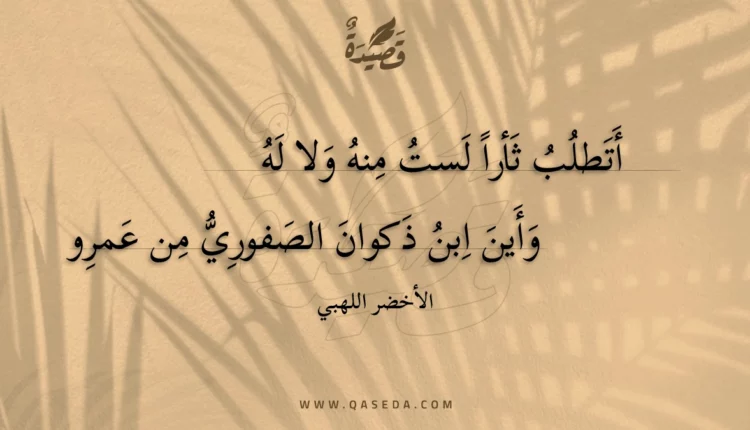 قَصِيْدَةٌ
أَتَطلُبُ ثَأراً لَستُ مِنهُ وَلا لَهُ
وَأَينَ اِبنُ ذَكوانَ الصَفورِيُّ مِن عَمرِو
الأخضر اللهبي
WWW.QASEDA.COM